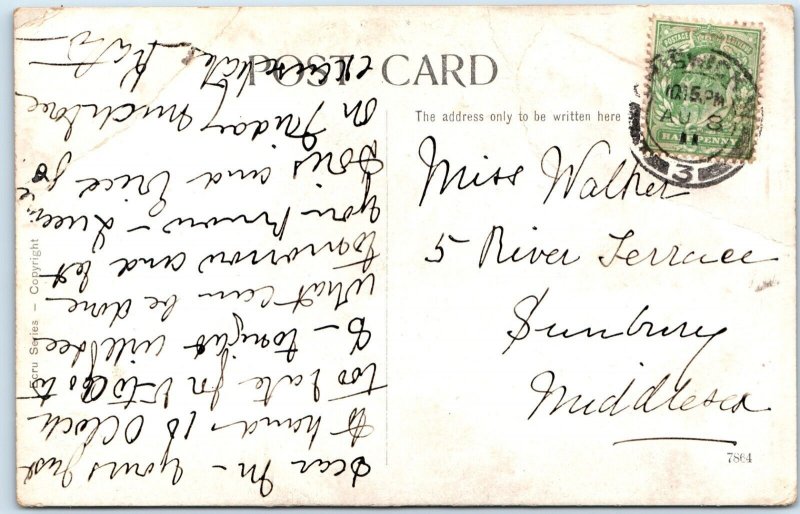 POST CARD
The address only to be written here
Miss Walker
5 River Terrace
Sunbury
Middlesex
7864
Ecru Series – Copyright
HALFPENNY
10.15 PM
AU 3
11
3
Dear M – yours just
to hand – 10 OClock
too late for V to go to
– tonight will see
what can be done
tomorrow and let
you know – Queenie
Doris and Eric go
on Friday much love